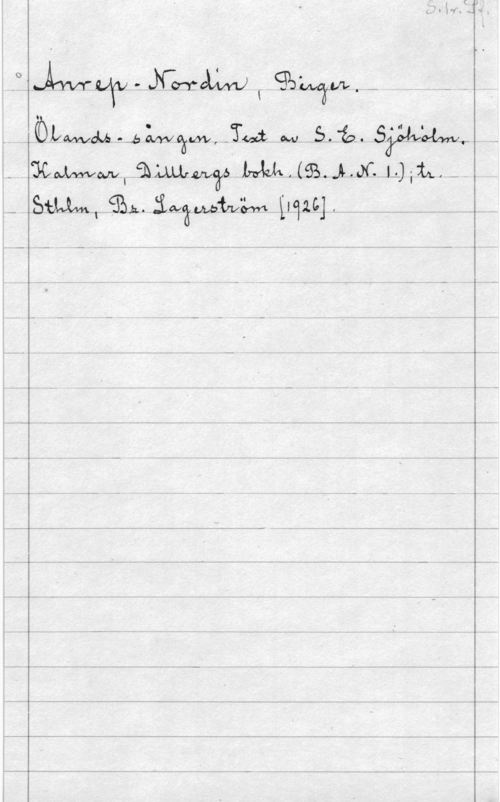 Anrep-Nordin, Birger.
Ölands-sången. Text av S. E. Sjöholm.
Kalmar, Dillbergs bokh. (B. A. N. 1.); tr.
Sthlm, Br. Lagerström [1926].